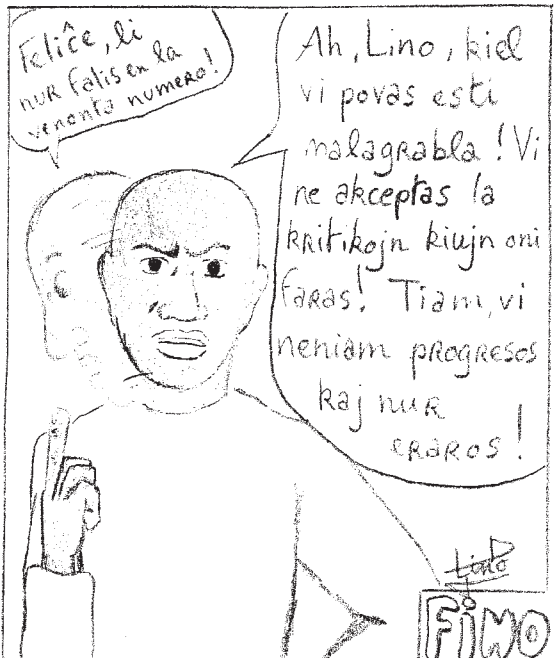 Feliĉe, li
nur falis en la
venonta numero!
Ah, Lino, kiel
vi povas esti
malagrabla! Vi
ne akceptas la
kritikojn kiujn oni
faras! Tiam, vi
neniam progresos
kaj nur
eraros!
Lino
FiNO